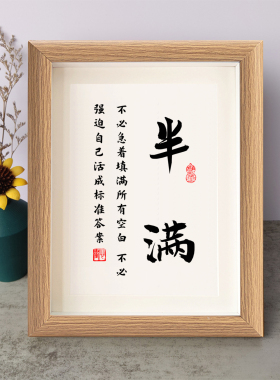 半满
不必急着填满所有空白 不必
强迫自己活成标准答案